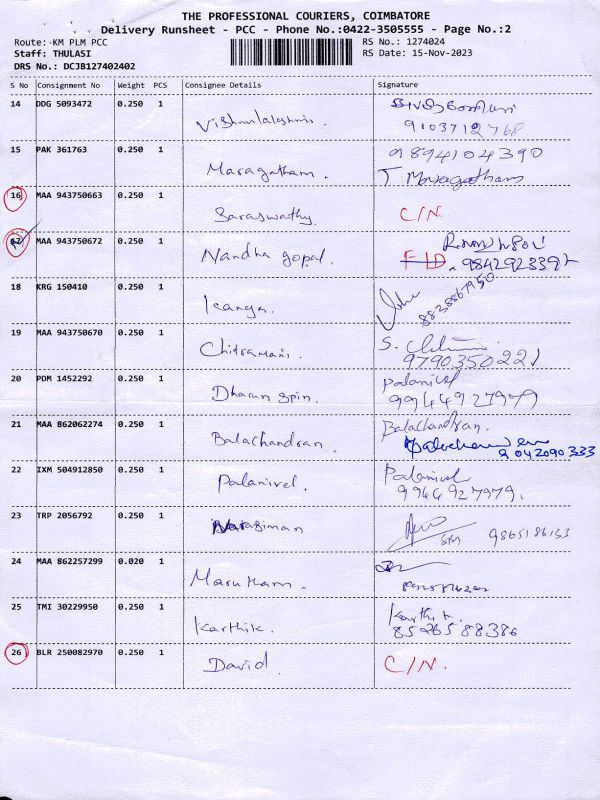 THE PROFESSIONAL COURIERS, COIMBATORE
Delivery Runsheet - PCC - Phone No.:0422-3505555 - Page No.:2
Route: KM PLM PCC RS No.: 1274024
Staff: THULASI RS Date: 15-Nov-2023
DRS No.: DCJB127402402
S No Consignment No Weight PCS Consignee Details Signature
14 DDG 5093472 0.250 1 Vishnulakshmi.
15 PAK 361763 0.250 1 Maragatham. 9894104390
T. Maragatham
16 MAA 943750663 0.250 1 Saraswathy. C/N.
MAA 943750672 0.250 1 Nandha gopal.
18 KRG 150410 0.250 1 8838867950
19 MAA 943750670 0.250 1 Chitramani. S.
9790350221
20 PDM 1452292 0.250 1 Dharun spin. Palanivel
9944927979
21 MAA 862062274 0.250 1 Balachandran. Balachandran.
9042090333
22 IXM 504912850 0.250 1 Palanivel. Palanivel
9944927979.
23 TRP 2056792 0.250 1 Narasiman
24 MAA 862257299 0.020 1 Marutham.
25 TMI 30229950 0.250 1 Karthik. Karthik.
8526588386
26 BLR 250082970 0.250 1 David. C/N.